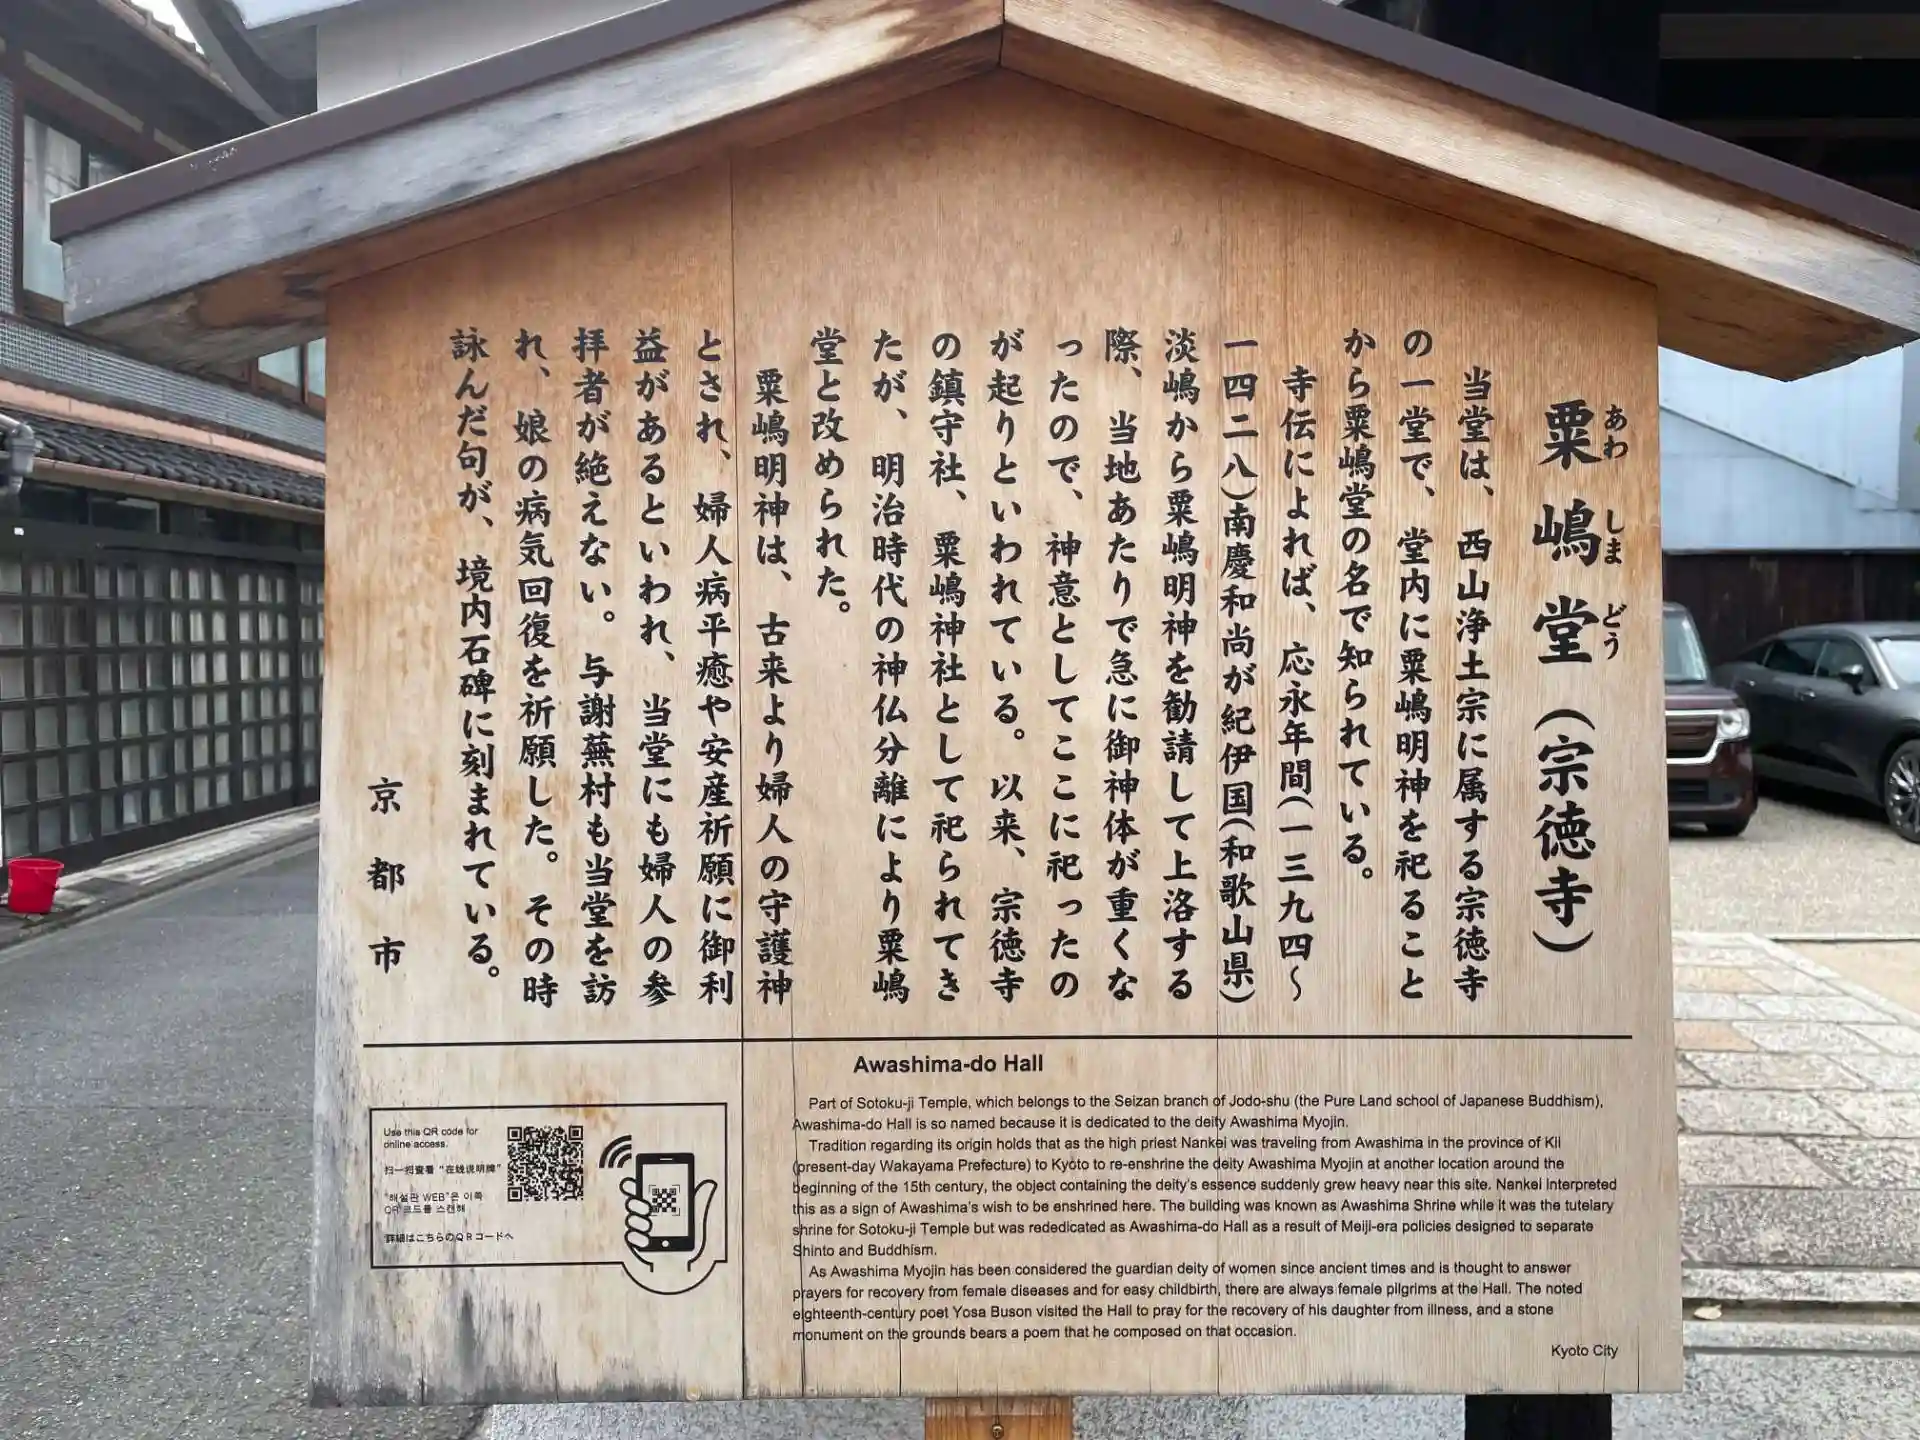 粟嶋堂(宗徳寺)
あわしまどう
当堂は、西山浄土宗に属する宗徳寺
の一堂で、堂内に粟嶋明神を祀ること
から粟嶋堂の名で知られている。
寺伝によれば、応永年間(一三九四〜
一四二八)南慶和尚が紀伊国(和歌山県)
淡嶋から粟嶋明神を勧請して上洛する
際、当地あたりで急に御神体が重くな
ったので、神意としてここに祀ったの
が起りといわれている。以来、宗徳寺
の鎮守社、粟嶋神社として祀られてき
たが、明治時代の神仏分離により粟嶋
堂と改められた。
粟嶋明神は、古来より婦人の守護神
とされ、婦人病平癒や安産祈願に御利
益があるといわれ、当堂にも婦人の参
拝者が絶えない。与謝蕪村も当堂を訪
れ、娘の病気回復を祈願した。その時
詠んだ句が、境内石碑に刻まれている。
京都市
Awashima-do Hall
Part of Sotoku-ji Temple, which belongs to the Seizan branch of Jodo-shu (the Pure Land school of Japanese Buddhism),
Awashima-do Hall is so named because it is dedicated to the deity Awashima Myojin.
Tradition regarding its origin holds that as the high priest Nankei was traveling from Awashima in the province of Kii
(present-day Wakayama Prefecture) to Kyoto to re-enshrine the deity Awashima Myojin at another location around the
beginning of the 15th century, the object containing the deity's essence suddenly grew heavy near this site. Nankei interpreted
this as a sign of Awashima's wish to be enshrined here. The building was known as Awashima Shrine while it was the tutelary
shrine for Sotoku-ji Temple but was rededicated as Awashima-do Hall as a result of Meiji-era policies designed to separate
Shinto and Buddhism.
As Awashima Myojin has been considered the guardian deity of women since ancient times and is thought to answer
prayers for recovery from female diseases and for easy childbirth, there are always female pilgrims at the Hall. The noted
eighteenth-century poet Yosa Buson visited the Hall to pray for the recovery of his daughter from illness, and a stone
monument on the grounds bears a poem that he composed on that occasion.
Kyoto City
Use this QR code for
online access.
扫一扫查看"在线说明牌"
"해설판 WEB"은 이쪽
QR 코드를 스캔해
詳細はこちらのQRコードへ